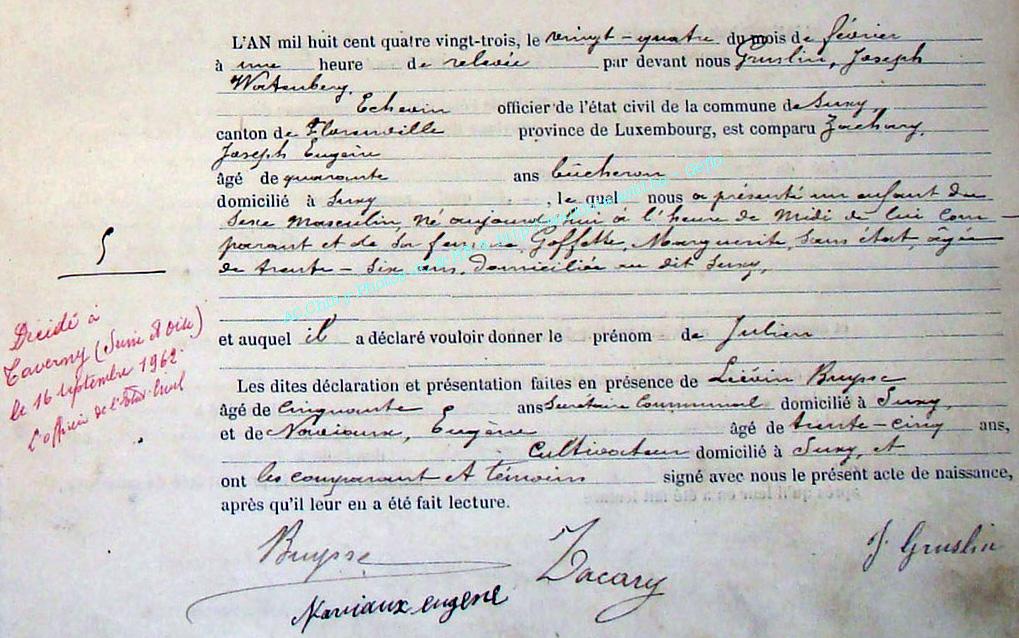 L'AN mil huit cent quatre vingt-trois, le vingt-quatre du mois de février
à une heure de relevée par devant nous Gruslin, Joseph
Echevin officier de l'état civil de la commune de Suxy,
canton de Florenville province de Luxembourg, est comparu Zachary,
Joseph Eugène
âgé de quarante ans bûcheron
domicilié à Suxy, le quel nous a présenté un enfant du
sexe masculin, né aujourd'hui à l'heure de midi de lui com-
parant et de sa femme Goffette, Marguerite, sans état, âgée
de trente-six ans, domiciliée au dit Suxy,
5
et auquel il a déclaré vouloir donner le prénom de Julien
Les dites déclaration et présentation faites en présence de Liévin Buysse
âgé de cinquante ans Secrétaire Communal domicilié à Suxy,
et de Noviaux, Eugène âgé de trente-cinq ans,
Cultivateur domicilié à Suxy, et
ont les comparant et témoins signé avec nous le présent acte de naissance,
après qu'il leur en a été fait lecture.
Décédé à
Taverny (Seine et Oise)
le 16 septembre 1962.
L'officier de l'Etat-Civil
Buysse
Zacary
J. Gruslin
Noviaux eugene